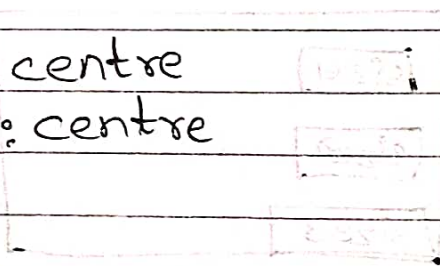 centre
: centre